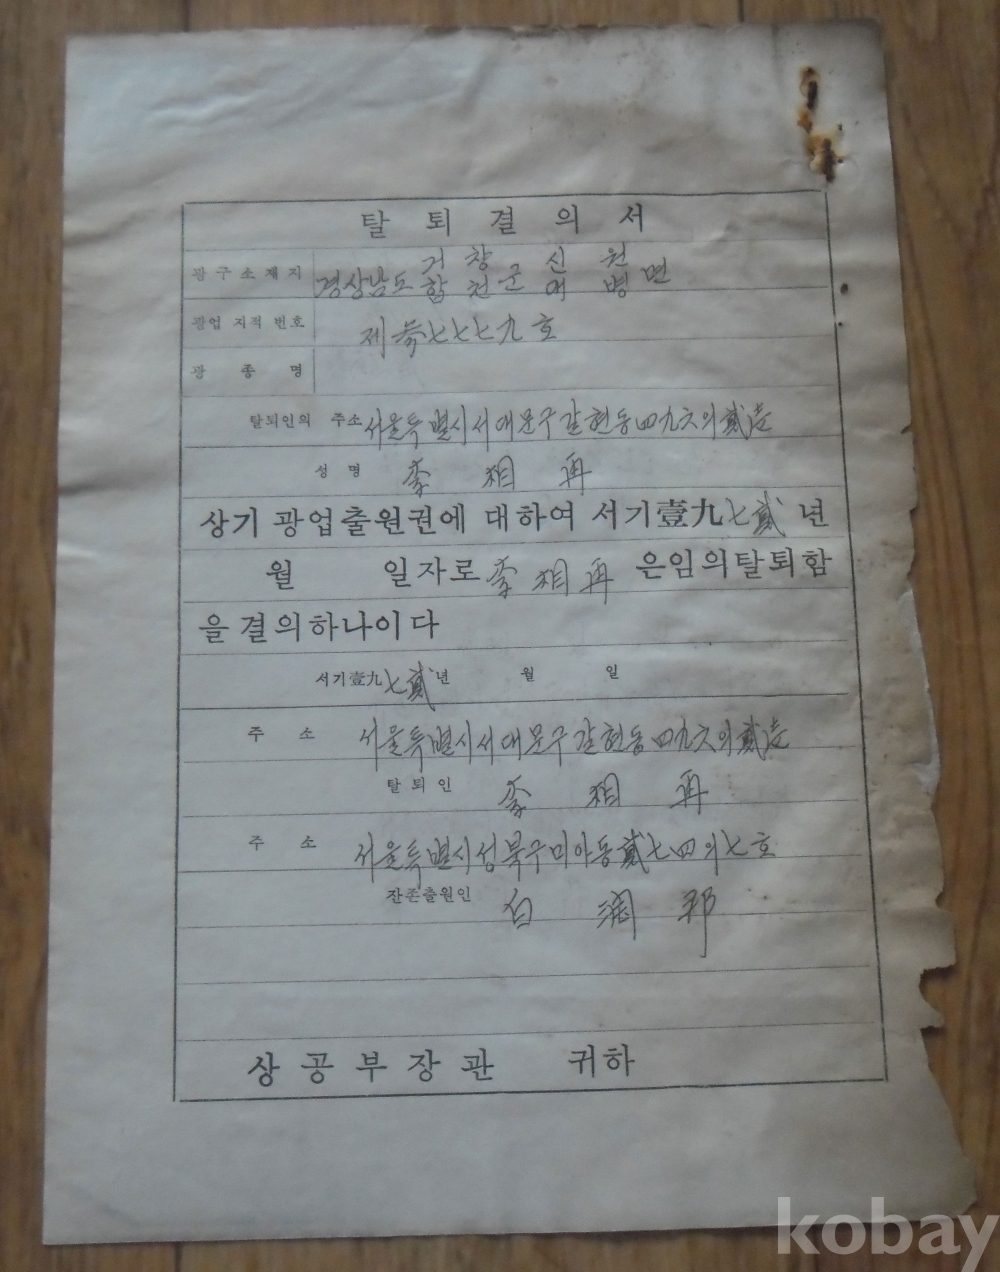 탈 퇴 결 의 서
광 구 소 재 지 경상남도 거창 합천 군 신원 대병 면
광업 지적 번호 제参七七七九호
광 종 명
탈퇴인의 주소 서울특별시서대문구갈현동四九六의貳호
성 명 李 相 再
상기 광업출원권에 대하여 서기壹九七貳년
월 일자로 李相再 은임의탈퇴함
을결의하나이다
서기壹九七貳년 월 일
주 소 서울특별시서대문구갈현동四九六의貳호
탈 퇴 인 李 相 再
주 소 서울특별시성북구미아동貳七四의七호
잔존출원인 白
상 공 부 장 관 귀하
kobay